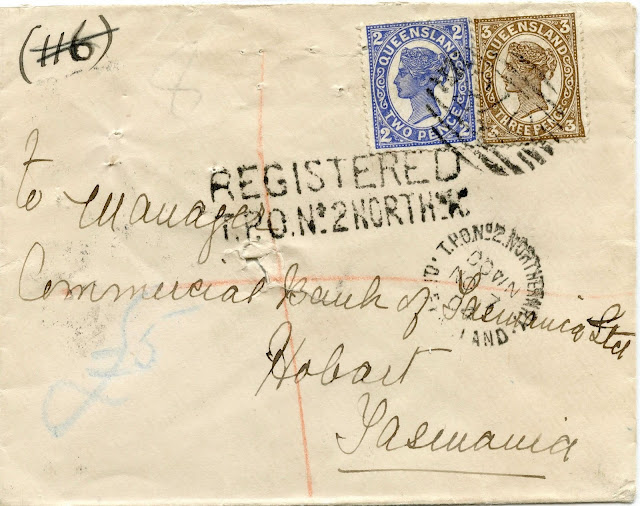 (116)
2 QUEENSLAND 2
2 TWO PENCE 2
3 QUEENSLAND 3
3 THREE PENCE 3
REGISTERED
T.P.O. No. 2 NORTH.
T.P.O. No. 2. NORTHERN
LAND.
To Manager
Commercial Bank of Tasmania Ltd
Hobart
Tasmania